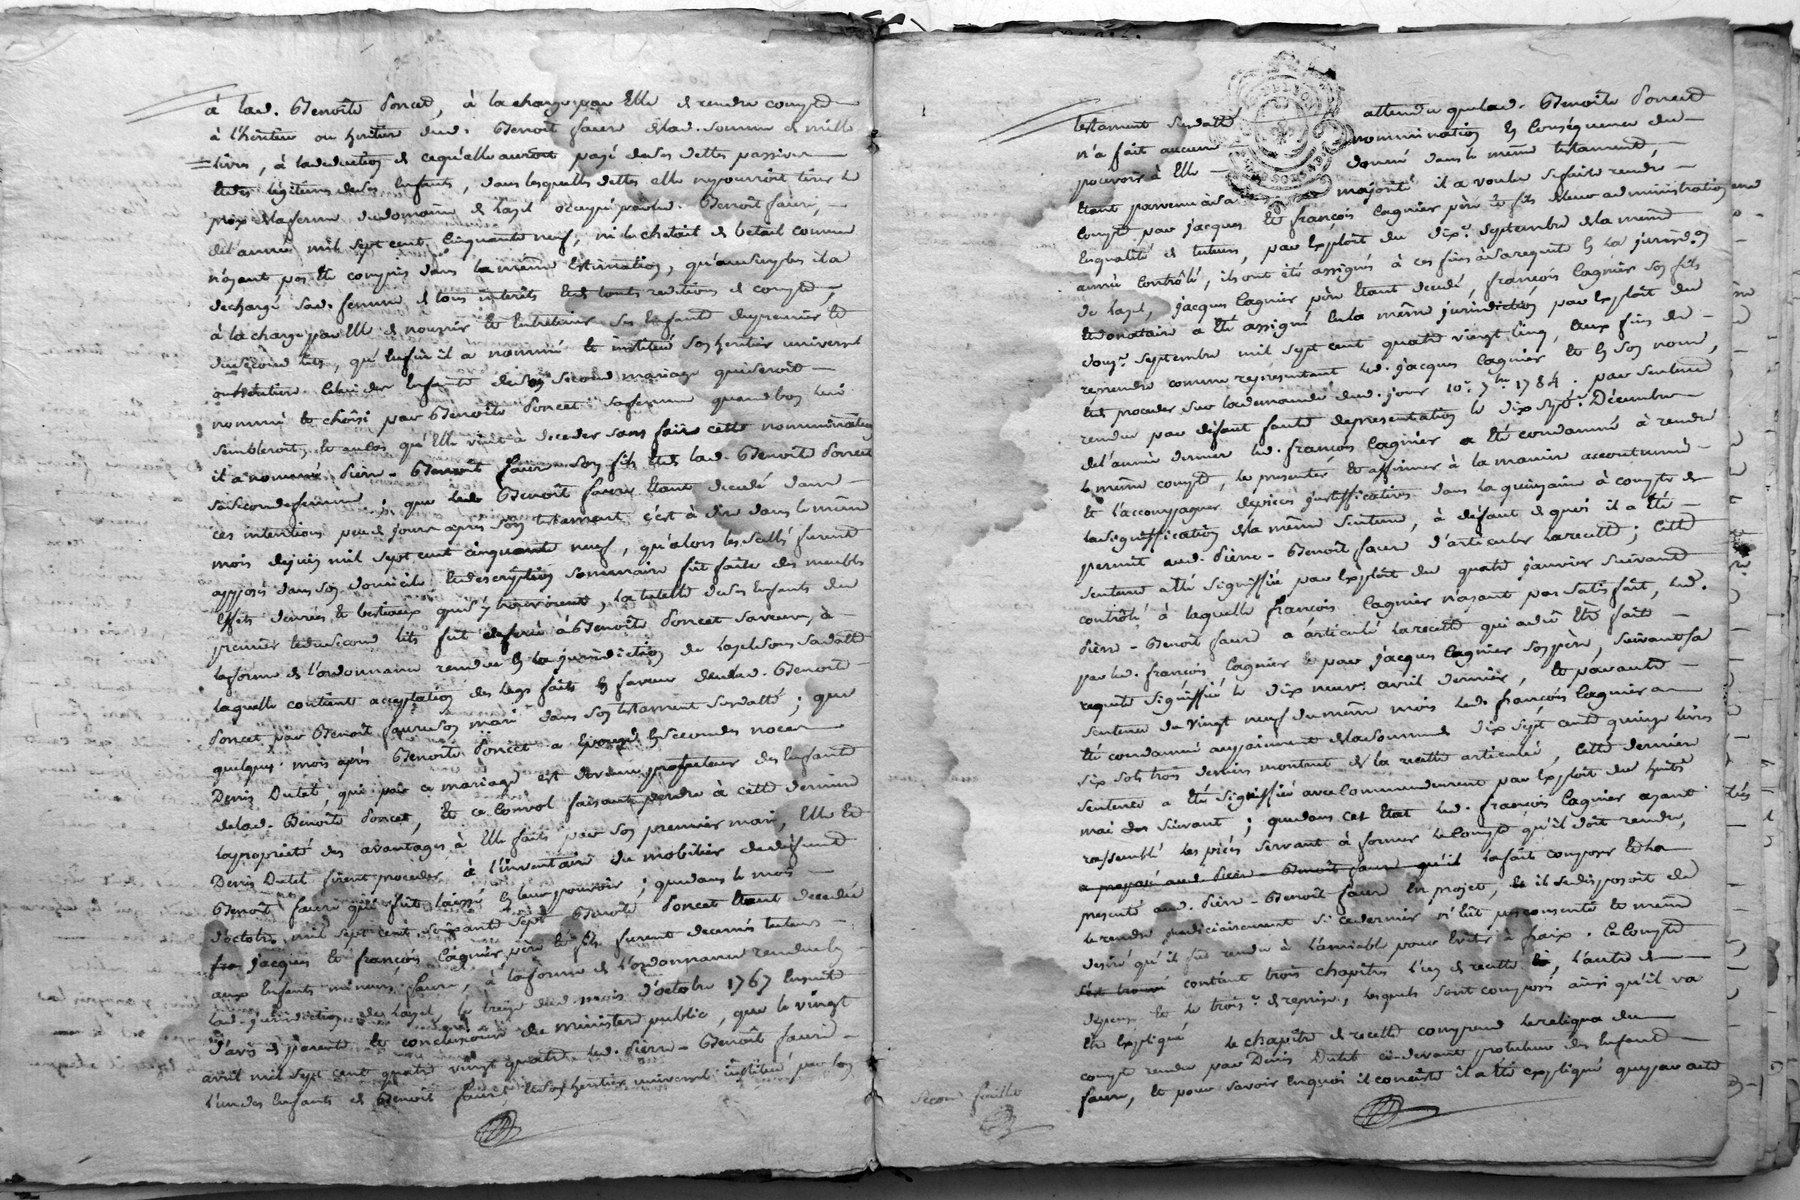 à lad. Benoîte Poncet, à la charge par Elle de rendre compte
à l'héritier ou héritière dud. Benoit faure de lad. somme de mille
livres, à la déduction de ce qu'elle auroit payé de ses dettes passives
et des légitimes de ses Enfants, dans lesquelles dettes elle ne pourroit tirer le
prix de la ferme du domaine de occupé par led. Benoît faure,
de l'année mil sept cent Cinquante neuf, ni le chetail de bétail comme
n'ayant pas été compris dans la même Estimation, qu'au surplus il a
déchargé sad. femme de tous intérêts et de toutes redditions de compte,
à la charge par Elle de nourrir et Entretenir ses Enfants du premier et
du second lits, qu'Enfin il a nommé et institué son héritier universel
ou héritière Celui des Enfants de son second mariage qui seroit
nommé et choisi par Benoîte Poncet sa femme quand bon lui
sembleroit, et au cas qu'Elle vint à décéder sans faire cette nomination
il a nommé Pierre-Benoit faure son fils et de lad. Benoite Poncet
sa seconde femme; que led. Benoit faure étant décédé dans
ces intentions peu de jours après son testament c'est à dire dans le même
mois de juin mil sept cent cinquante neuf, qu'alors les scellés furent
apposés dans son domicile et description sommaire fut faite des meubles
Effets denrées et bestiaux qui s'y trouvèrent, la tutelle de ses Enfants du
premier et du second lits fut deferée à Benoîte Poncet sa veuve, à
la forme de l'ordonnance rendue En la juridiction de sous sa datte
laquelle contient acceptation des legs faits En faveur de lad. Benoite
Poncet par Benoît faure son mari dans son testament susdatté; que
quelques mois après Benoîte Poncet a Epousé En secondes noces
Denis Dutel, qui par ce mariage est devenu protuteur des Enfants
de lad. Benoîte Poncet, et ce Convol faisant perdre à cette derniere
la propriété des avantages à Elle faits par son premier mari, Elle et
Denis Dutel firent procéder à l'inventaire du mobilier du défunt
Benoit faure qui fut laissé En leur pouvoir; que dans le mois
d'octobre mil sept cent soixante sept Benoîte Poncet étant décédée
fra jacques et françois Cagnier père et fils furent décernés tuteurs
aux Enfants mineurs faure, à la forme de l'ordonnance rendue En
lad. juridiction de le treize dud. mois d'octobre 1767 Ensuite
d'avis de parents et conclusions du ministère public, que le vingt
avril mil sept cent quatre vingt quatre led. Pierre-Benoît faure
l'un des Enfants de Benoît faure et son héritier universel institué par son
testament susdatté attendu que lad. Benoîte Poncet
n'a fait aucune nomination En Conséquence du
pouvoir à Elle donné dans le même testament,
Etant parvenu à sa majorité il a voulu se faire rendre
compte par jacques et françois Cagnier père et fils de leur administration
En qualité de tuteurs, par Exploit du dix septembre de la même
année Contrôlé, ils ont été assignés à ces fins à sa requête En la jurisd.on
de jacques Cagnier père étant decédé, françois Cagnier son fils
et donataire a été assigné En la même juridiction par Exploit du
septembre mil sept cent quatre vingt Cinq, aux fins de
reprendre comme représentant led. jacques Cagnier et En son nom,
et de procéder sur la demande dud. jour 10e. 7bre 1784. par sentence
rendue par défaut faute de présentation le dix Décembre
de l'année dernière led. françois Cagnier a été condamné à rendre
le même compte, le présenter et affirmer à la manière accoutumée
et l'accompagner de pièces justifficatives dans la quinzaine à compter de
la signiffication de la même sentence, à défaut de quoi il a été
permit aud. Pierre-Benoît faure d'articuler la recette; Cette
sentence a été signiffiée par Exploit du quatre janvier suivant
contrôlé à laquelle françois Cagnier n'ayant pas satisfait, led.
Pierre-Benoît faure a articulé la recette qui a dû être faite
par led. françois Cagnier et par jacques Cagnier son père, suivant sa
requête signiffiée le dix neuf avril dernier, et par autre
sentence du vingt neuf du même mois led. françois Cagnier a
été condamné au payement de la somme de dix sept cent quinze livres
six sols trois deniers montant de la recette articulée, Cette dernière
sentence a été signiffiée avec Commandement par Exploit du huit
mai suivant; que dans cet état led. françois Cagnier ayant
rassemblé les pièces servant à former le Compte qu'il doit rendre,
a proposé aud. Pierre-Benoît faure qu'il la fait composer et l'a
présenté aud. Pierre-Benoît faure En projet, et il se disposoit de
le rendre judiciairement si ce dernier n'eût pas consenti et même
désiré qu'il fut rendu à l'amiable pour éviter à fraix. Ce Compte
s'est trouvé contenant trois chapitres l'un de recette, l'autre de
dépense et le trois.e de reprise, lesquels sont composés ainsi qu'il va
être Expliqué le chapitre de recette comprend le reliqua du
compte rendu par Denis Dutel ci-devant protuteur des Enfants
faure, et pour savoir En quoi il consiste il a été expliqué que par acte
second feuillet